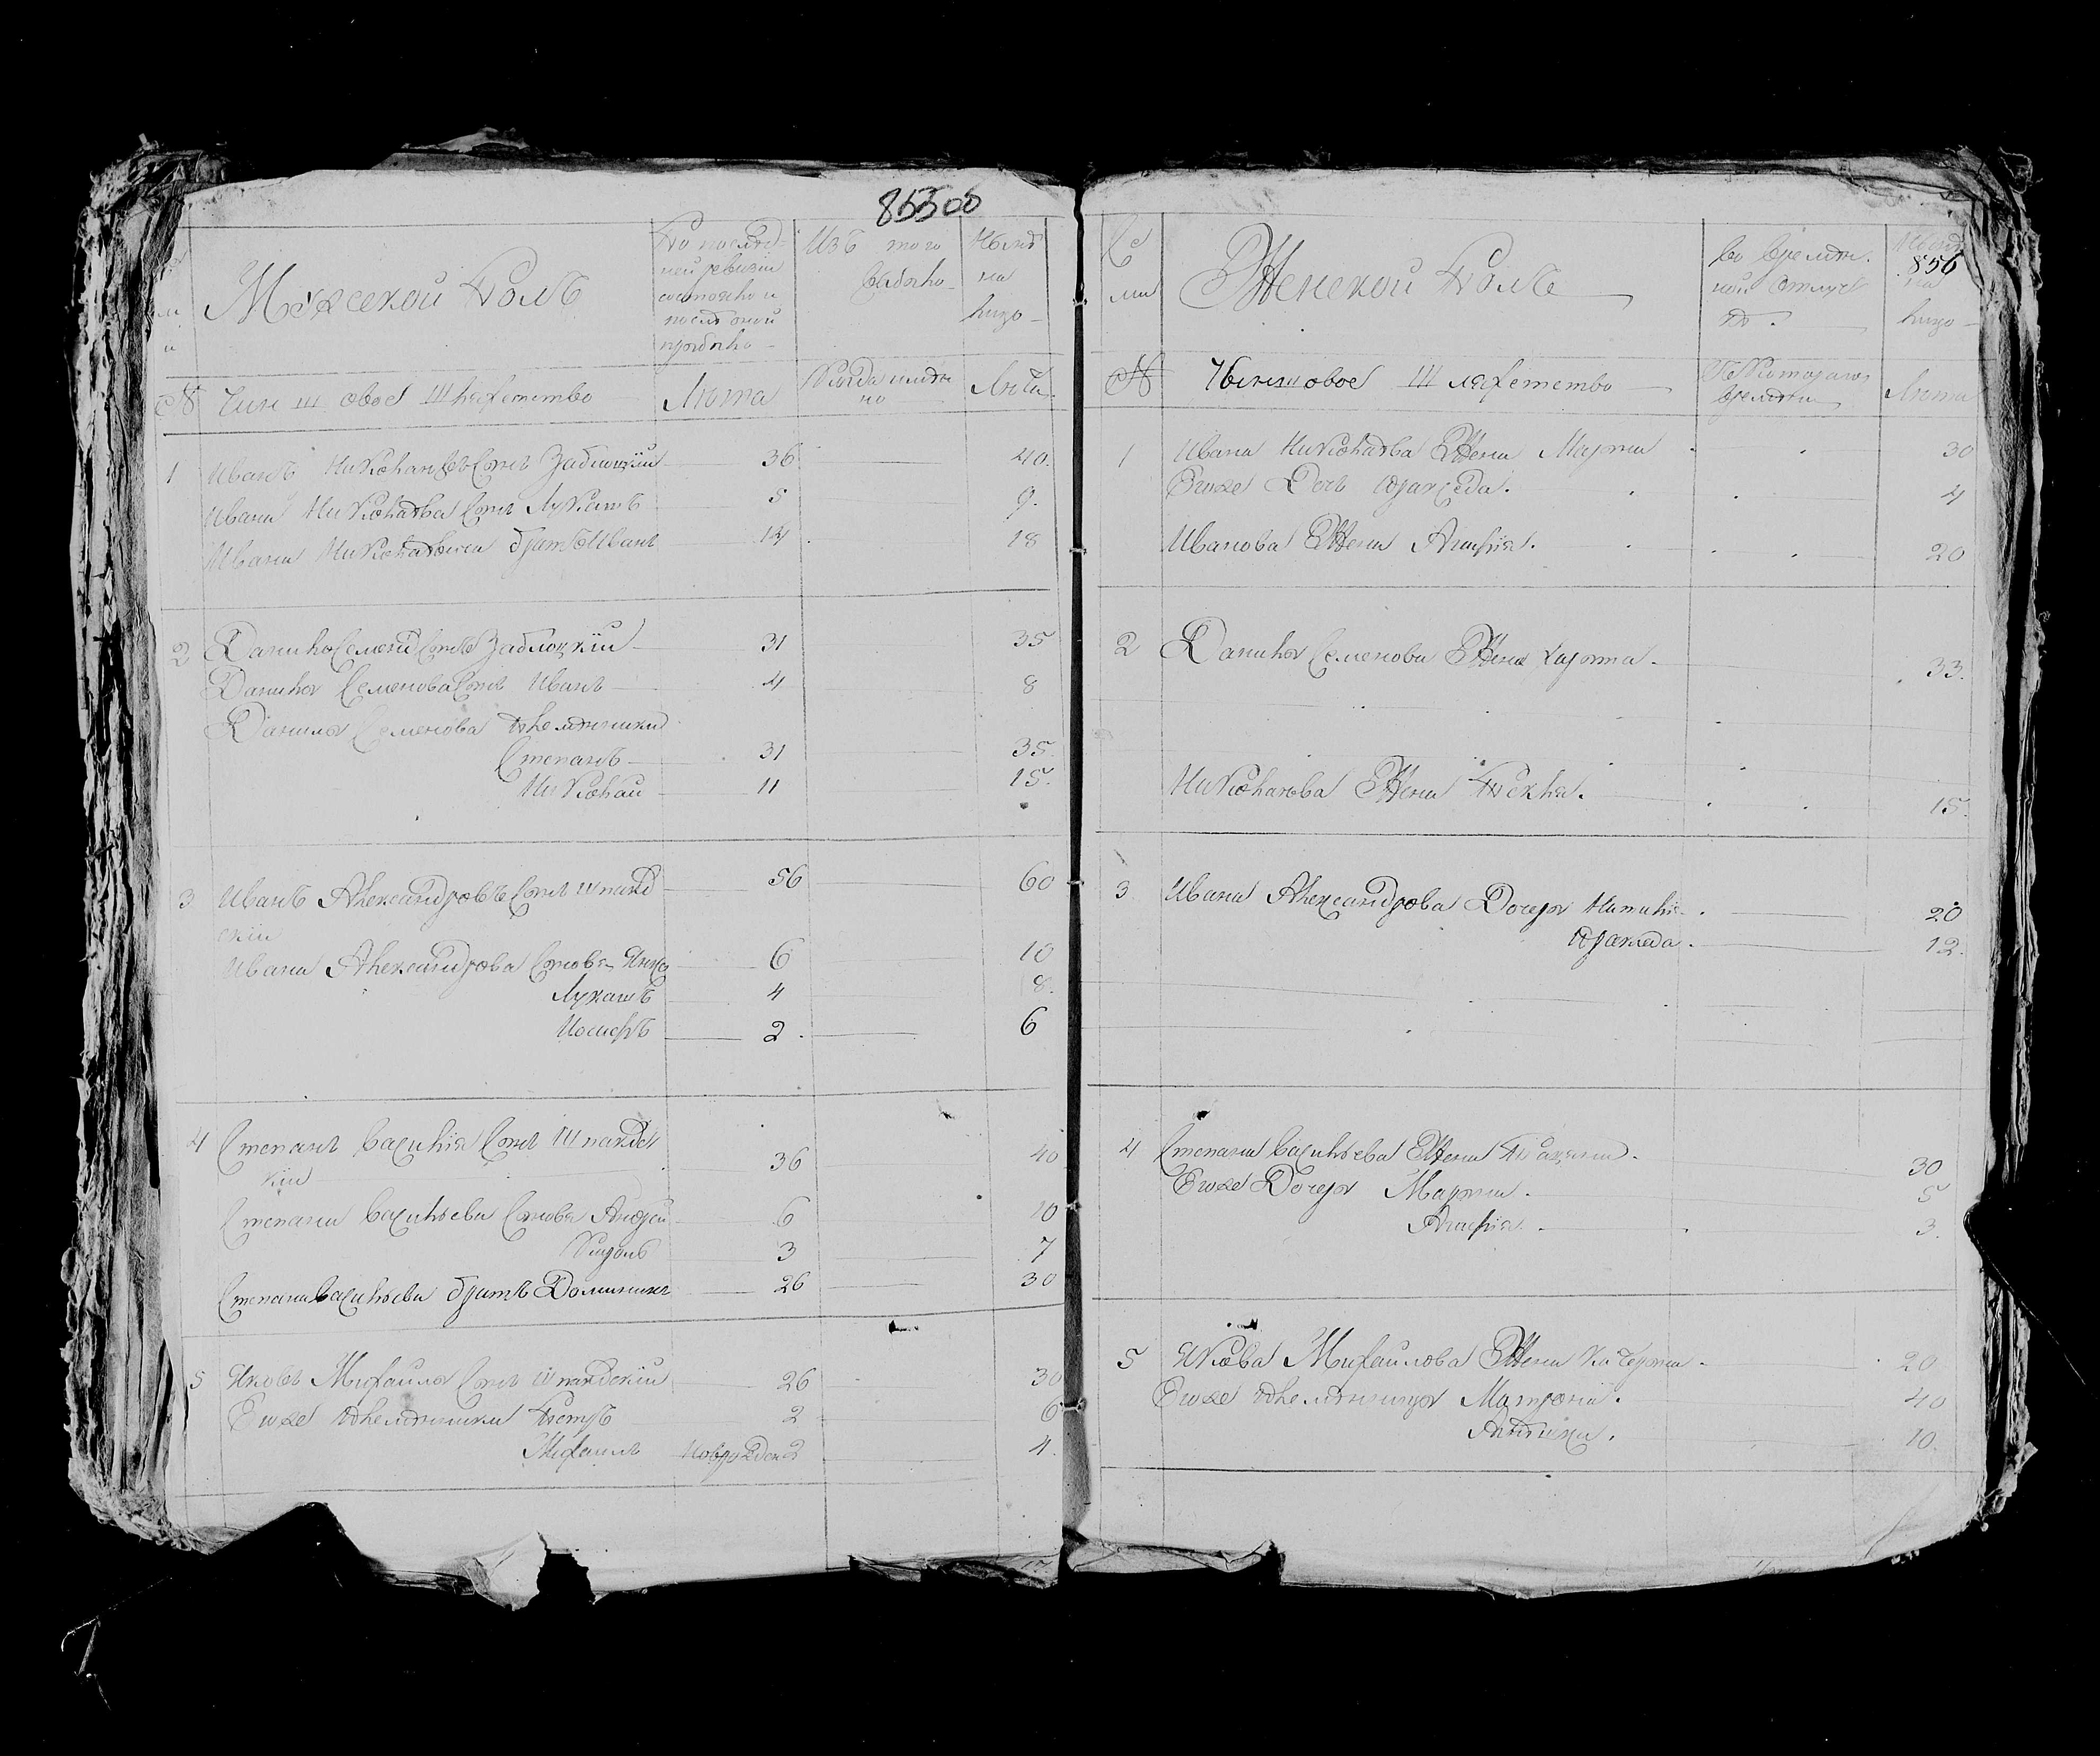 85500
Мужеской Полъ
По послед-
ней ревизіи
состояло и
после оной
прибыло
Изъ того
выбыло
Ныне
на
лицо
№ Чинш овое Шляхетство
Лета
Когда имянно
Лета
1 Иванъ Николаевъ Сынъ Заблоцкій 36 40.
Ивана Николаева Сынъ Лукашъ 5 9.
Ивана Николаевича братъ Иванъ 14 18
2 Данило Семенъ Сынъ Заблоцкій 31 35
Данила Семенова Сынъ Иванъ 4 8
Данила Семенова племянники
Степанъ 31 35.
Николай 11 15.
3 Иванъ Александровъ Сынъ Шпаков
скій 56 60
Ивана Александрова Сыновья 6 10
Лукашъ 4 8.
Иосифъ 2 6
4 Степанъ Василья Сынъ
кій 36 40
Степана Васильева Сыновья Андрей 6 10
Кирилъ 3 7
Степана Васильева братъ Доминикъ 26 30
5 Яковъ Михайла Сынъ 26 30
Егоже племянники Петръ 2 6
Михаилъ новорожден 2 4.
Се
мьи
Женской Полъ
во времян.
ной отлуч
ке
856
на
лицо
№ Чинш овое Шляхетство
С Котораго
времяни
Лета
1 Ивана Николаева Жена Марта 30
Егоже Дочь 4
Иванова Жена Агафія. 20
2 Данила Семенова Жена 33.
Николаева Жена Текля. 15.
3 Ивана Александрова Дочеря Наталія 20
12.
4 Степана Васильева Жена 30
Егоже Дочеря Марта. 5
Агафія. 3.
5 Якова Михайлова Жена Катерина 20
Егоже племянница Матрона. 40
10.